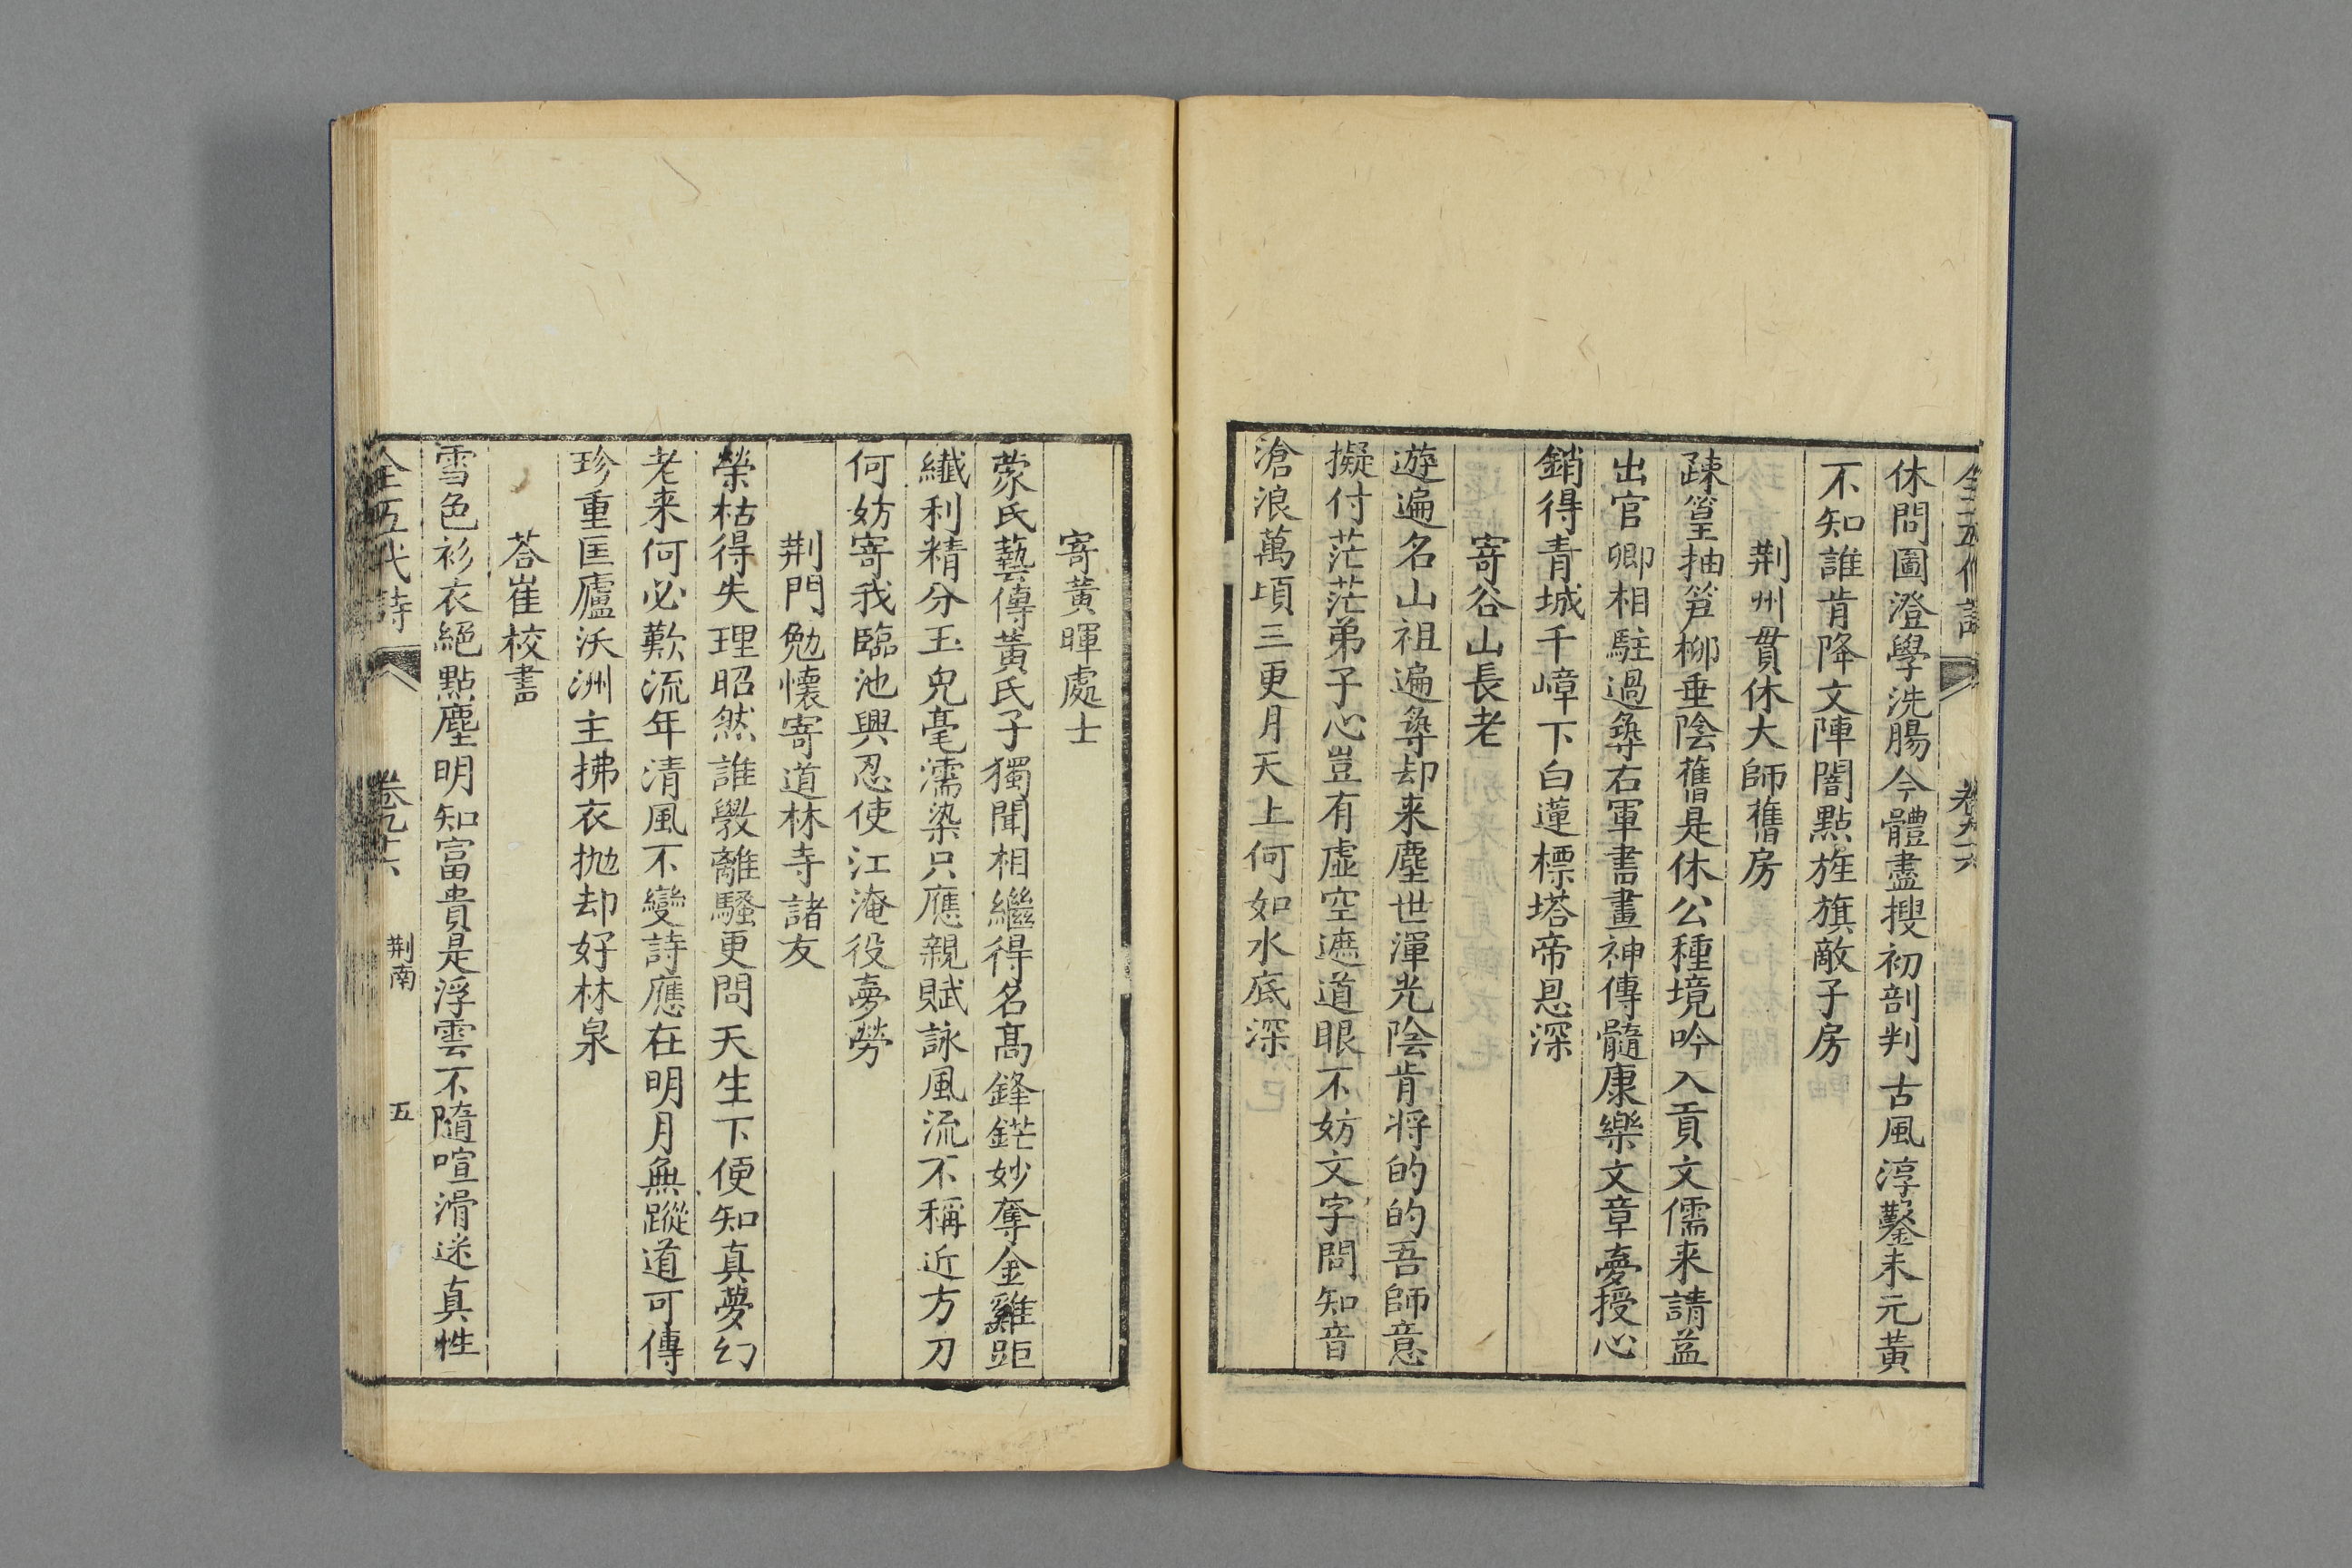 全五代詩 卷九十六
休問圖澄學洗腸今體盡搜初剖判古風淳鑿未元黃
不知誰肯降文陣闇點旌旗敵子房
荆州貫休大師舊房
疎篁抽筍柳垂陰舊是休公種境吟入貢文儒来請益
出官卿相駐過尋右軍書畫神傳髓康樂文章夢授心
銷得青城千嶂下白蓮標塔帝恩深
寄谷山長老
遊遍名山祖遍尋却来塵世渾光陰肯将的的吾師意
擬付茫茫弟子心豈有虛空遮道眼不妨文字問知音
滄浪萬頃三更月天上何如水底深
寄黄暉處士
蒙氏藝傳黃氏子獨聞相繼得名髙鋒鋩妙奪金雞距
纖利精分玉兔毫濡染只應親賦詠風流不稱近方刀
何妨寄我臨池興忍使江淹役夢勞
荆門勉懷寄道林寺諸友
榮枯得失理昭然誰斆離騷更問天生下便知真夢幻
老来何必歎流年清風不變詩應在明月無蹤道可傳
珍重匡廬沃洲主拂衣抛却好林泉
荅崔校書
雪色衫衣絕點塵明知富貴是浮雲不隨喧滑迷真性
全五代詩 卷九十六 荆南 五